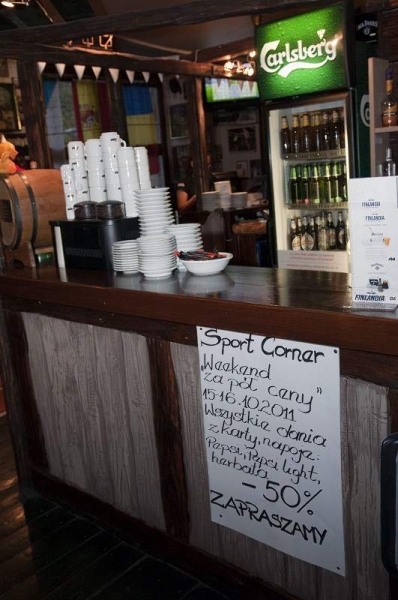 Carlsberg
FINLANDIA
FINLANDIA
Sport Corner
„Weekend
za pół ceny"
15-16.10.2011
Wszystkie dania
z karty, napoje:
Pepsi, Pepsi light,
herbata
- 50%
ZAPRASZAMY